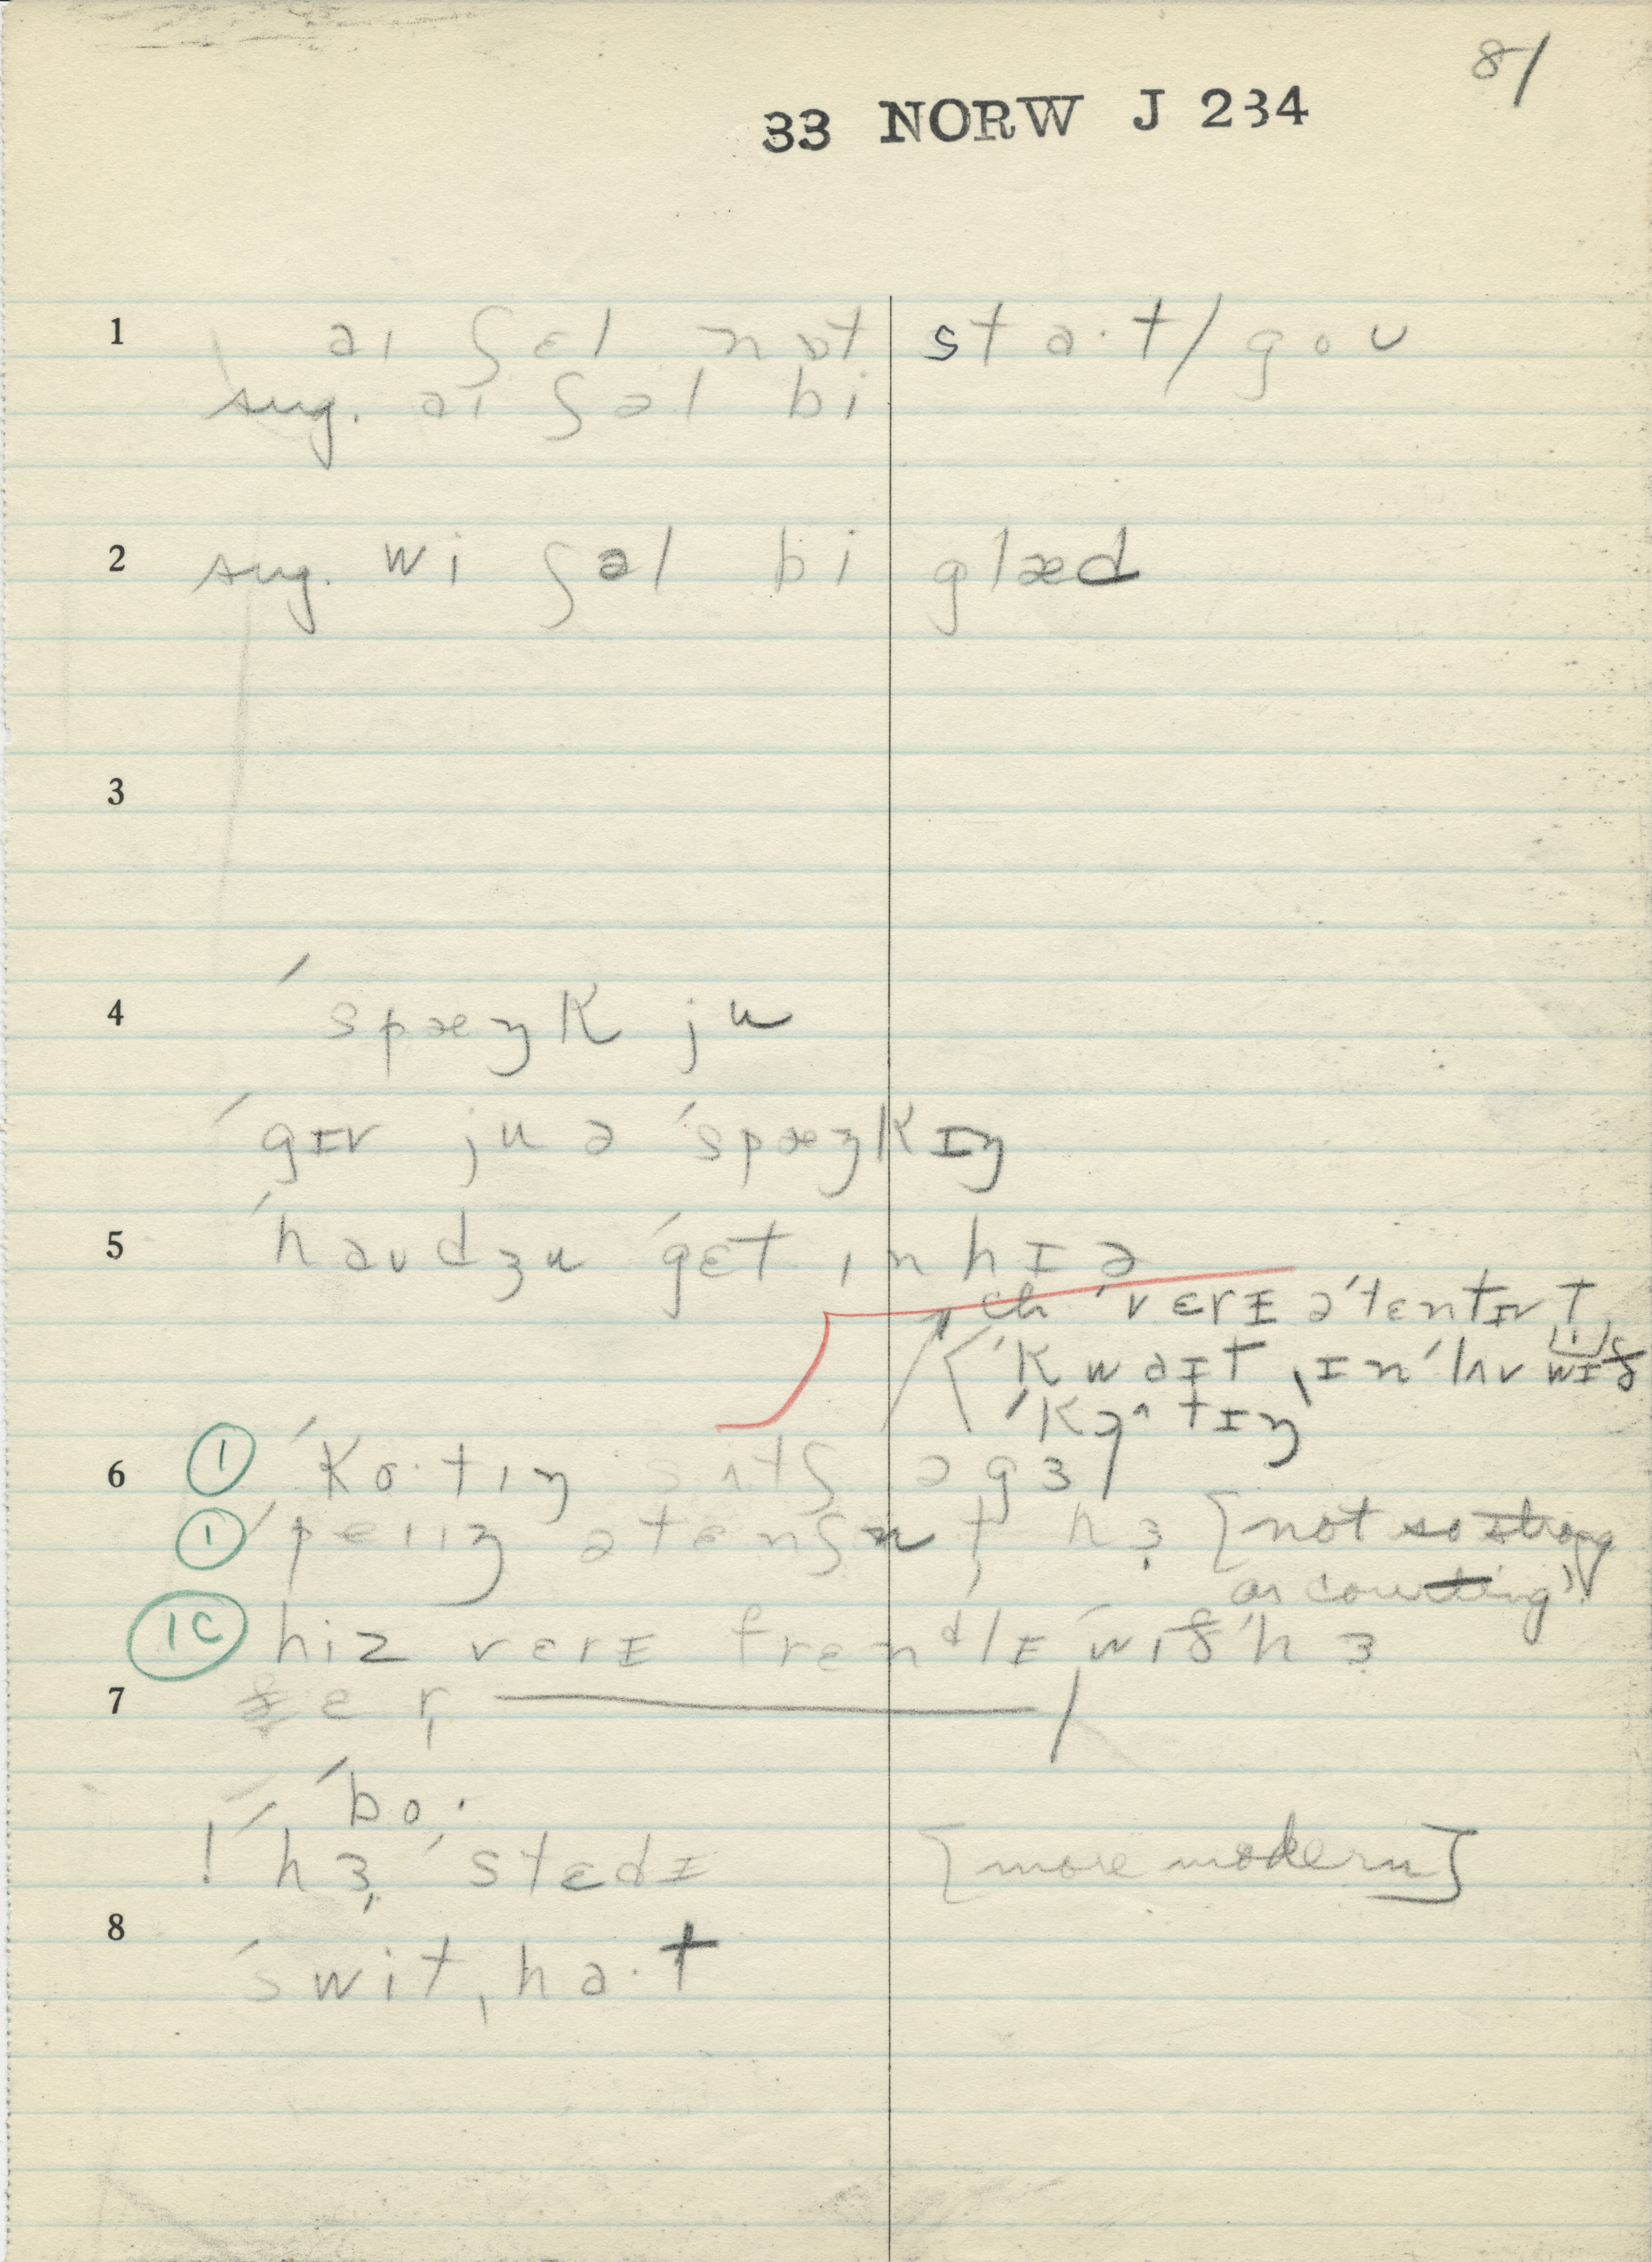 81
33 NORW J 234
1 aɪ ʃɛl nɒt staˑt/goʊ
sug. aɪ ʃəl bi
2 sug. wi ʃəl bi glæd
3
4 ˈspæŋk ju
ˈgɪv ju ə ˈspæŋkɪŋ
5 ˈhaʊdʒu ˈgɛt ˌɪn hɪə
ch ˈvɛrɪ əˈtɛntɪv t
ˈkwaɪt ˌɪn ˈlʌv wɪð
6 ① ˈkɔˑtɪŋ sʌtʃ ə gɜ
① ˈpeɪɪŋ ətɛnʃn t hɜ [not so strong
as counting]
1C hiz vɛrɪ frɛndlɪ ˈwɪð hɜ
7
ˈboˑ
! ˈhɜ ˈstɛdɪ [more modern]
8
ˈswitˌhaˑt